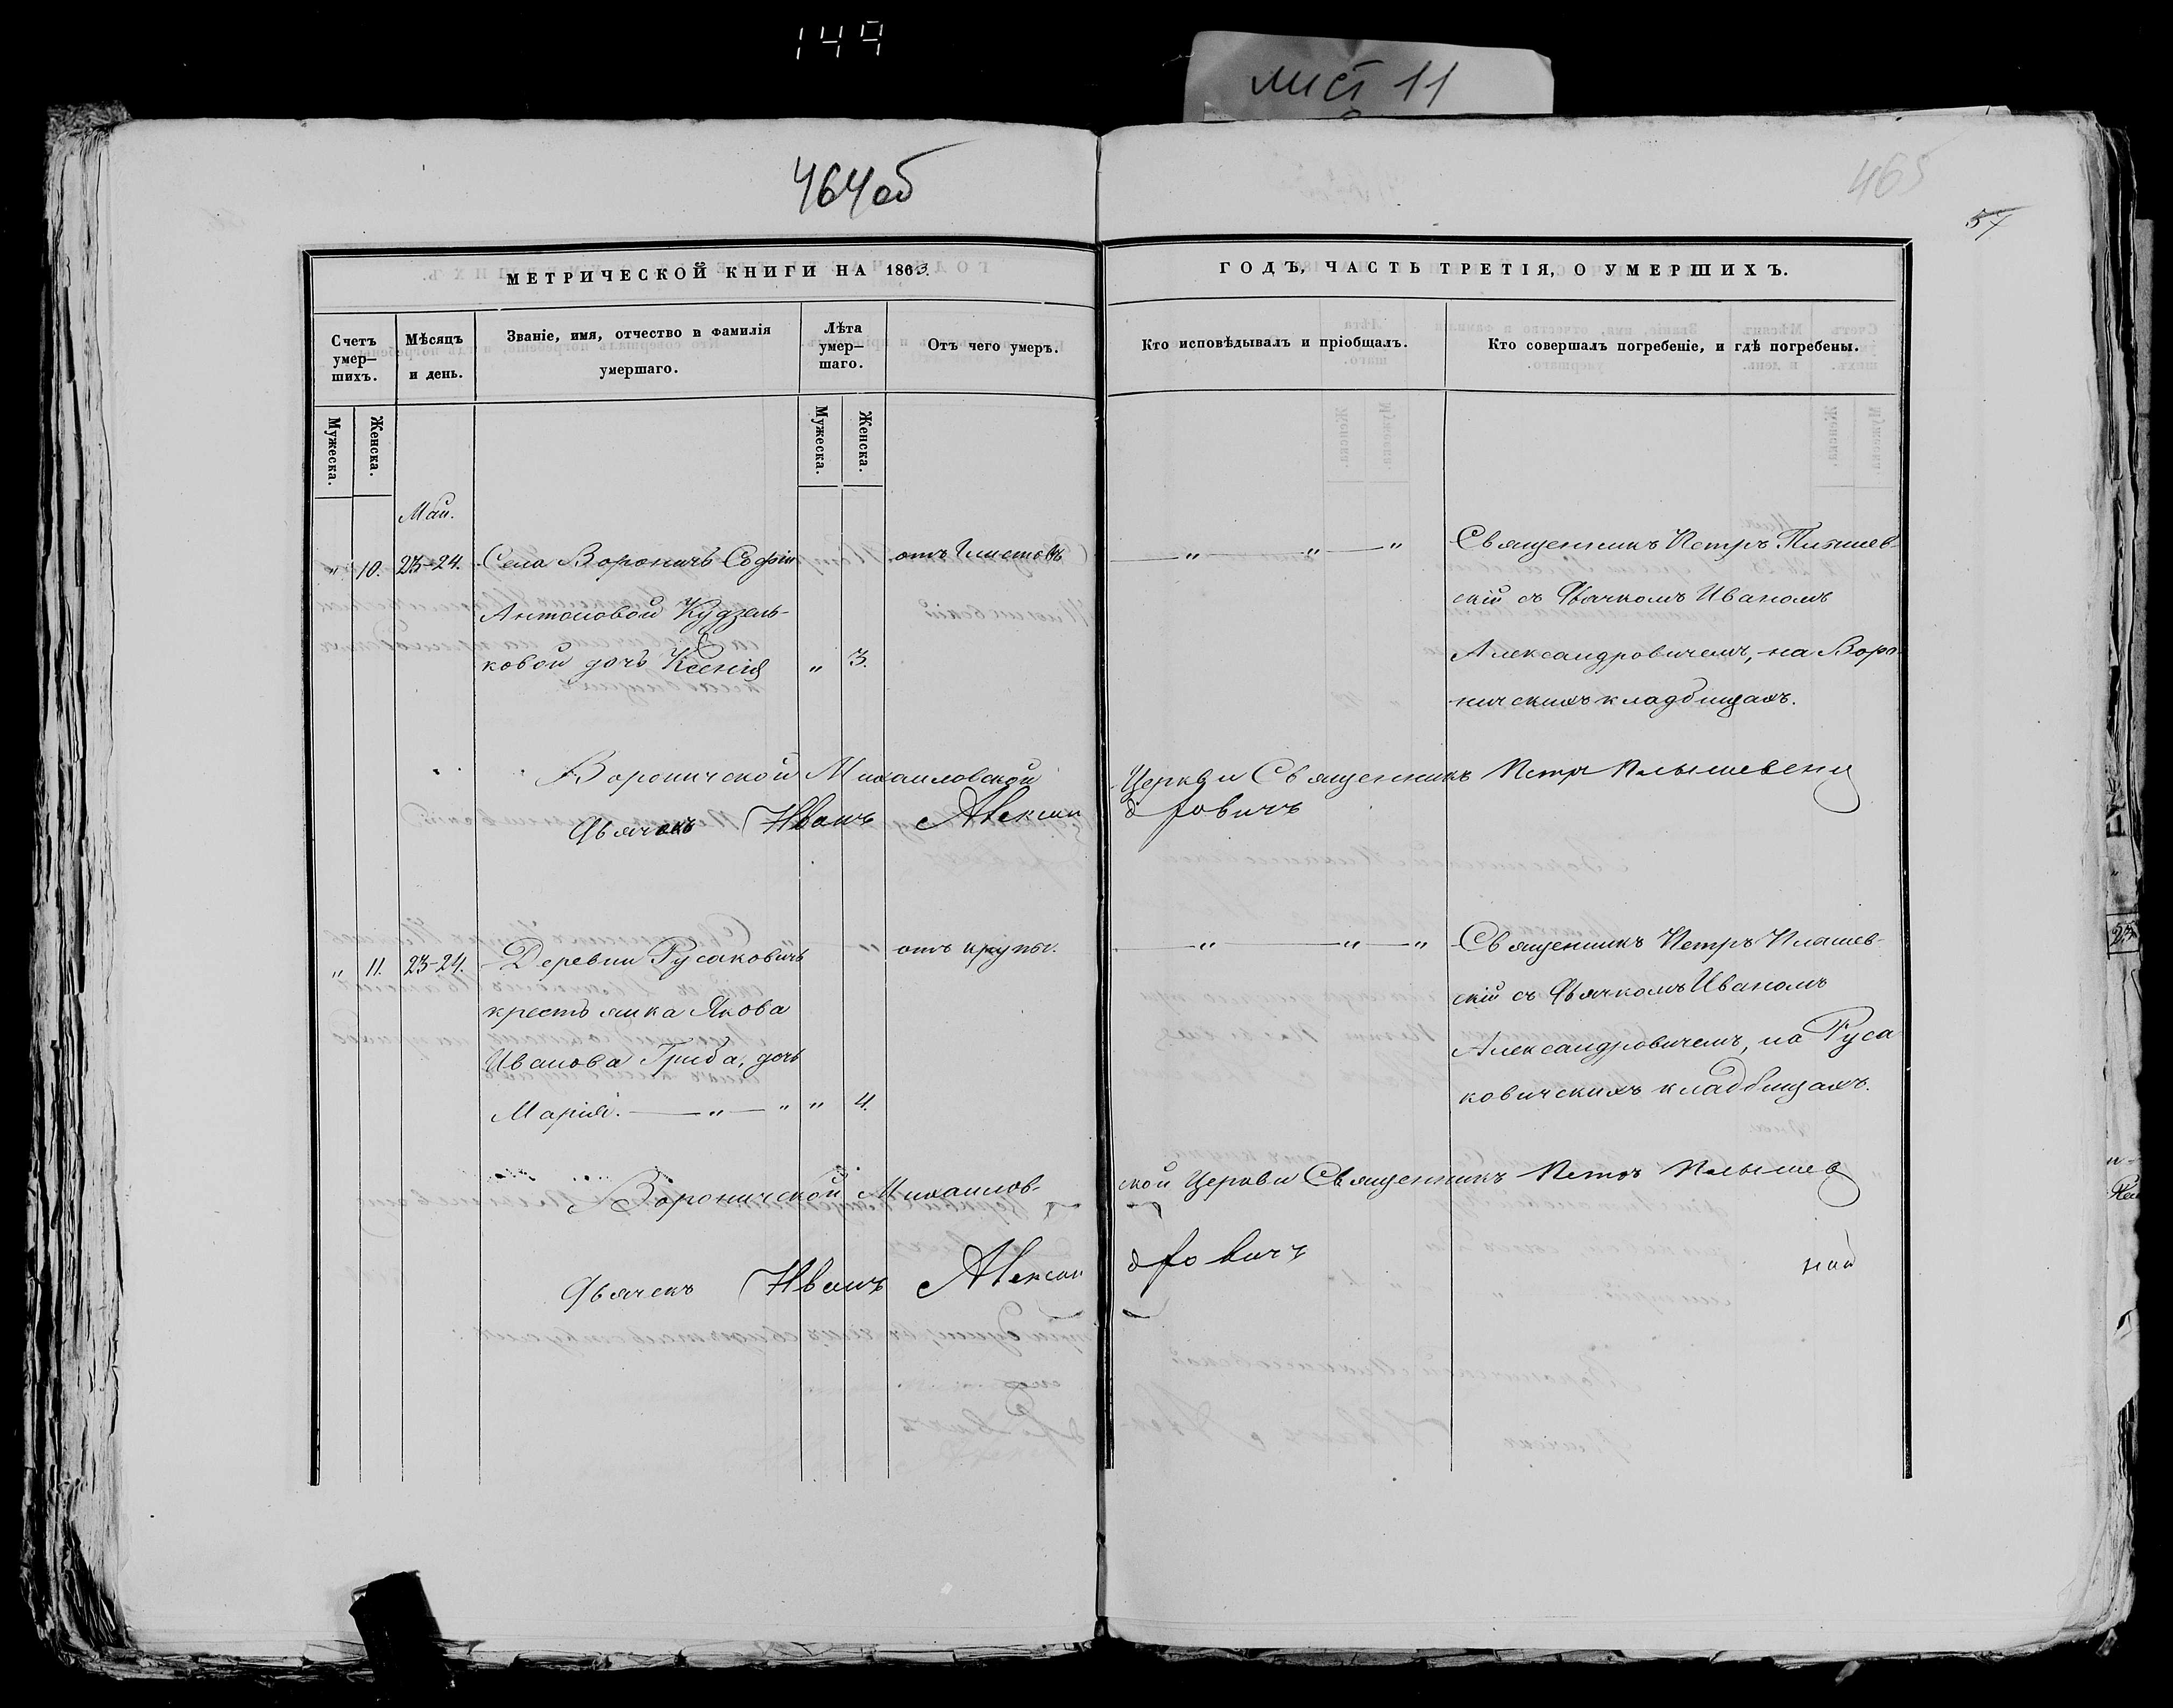 149
лист 11
464об
465
57
МЕТРИЧЕСКОЙ КНИГИ НА 1863.
ГОДЪ, ЧАСТЬ ТРЕТІЯ, О УМЕРШИХЪ.
Счетъ умер-шихъ.
Мѣсяцъ и день.
Званіе, имя, отчество и фамилія умершаго.
Лѣта умер-шаго.
Отъ чего умеръ.
Кто исповѣдывалъ и пріобщалъ.
Кто совершалъ погребеніе, и гдѣ погребены.
Мужеска.
Женска.
Мужеска.
Женска.
Май.
" 10. 23-24. Села Вороничь Софіи
Антоновой Кудзель-
ковой дочь Ксенія " 3.
отъ глистовъ
" " "
Священникъ Петръ
скій съ Дьячкомъ Иваномъ
Александровичемъ, на Воро
ническихъ кладбищахъ.
Воронической Михаиловской Церкви Священникъ Петръ
Дьячекъ Иванъ Александровичъ
" 11. 23-24. Деревни Русаковичь
крестьянка Якова
Иванова Гриба, дочь
Марія. " " " 4.
отъ крупы.
" " "
Священникъ Петръ
скій съ Дьячкомъ Иваномъ
Александровичемъ, на Руса
ковическихъ кладбищахъ.
Воронической Михаилов-ской Церкви Священникъ Петръ
Дьячекъ Иванъ Александровичъ